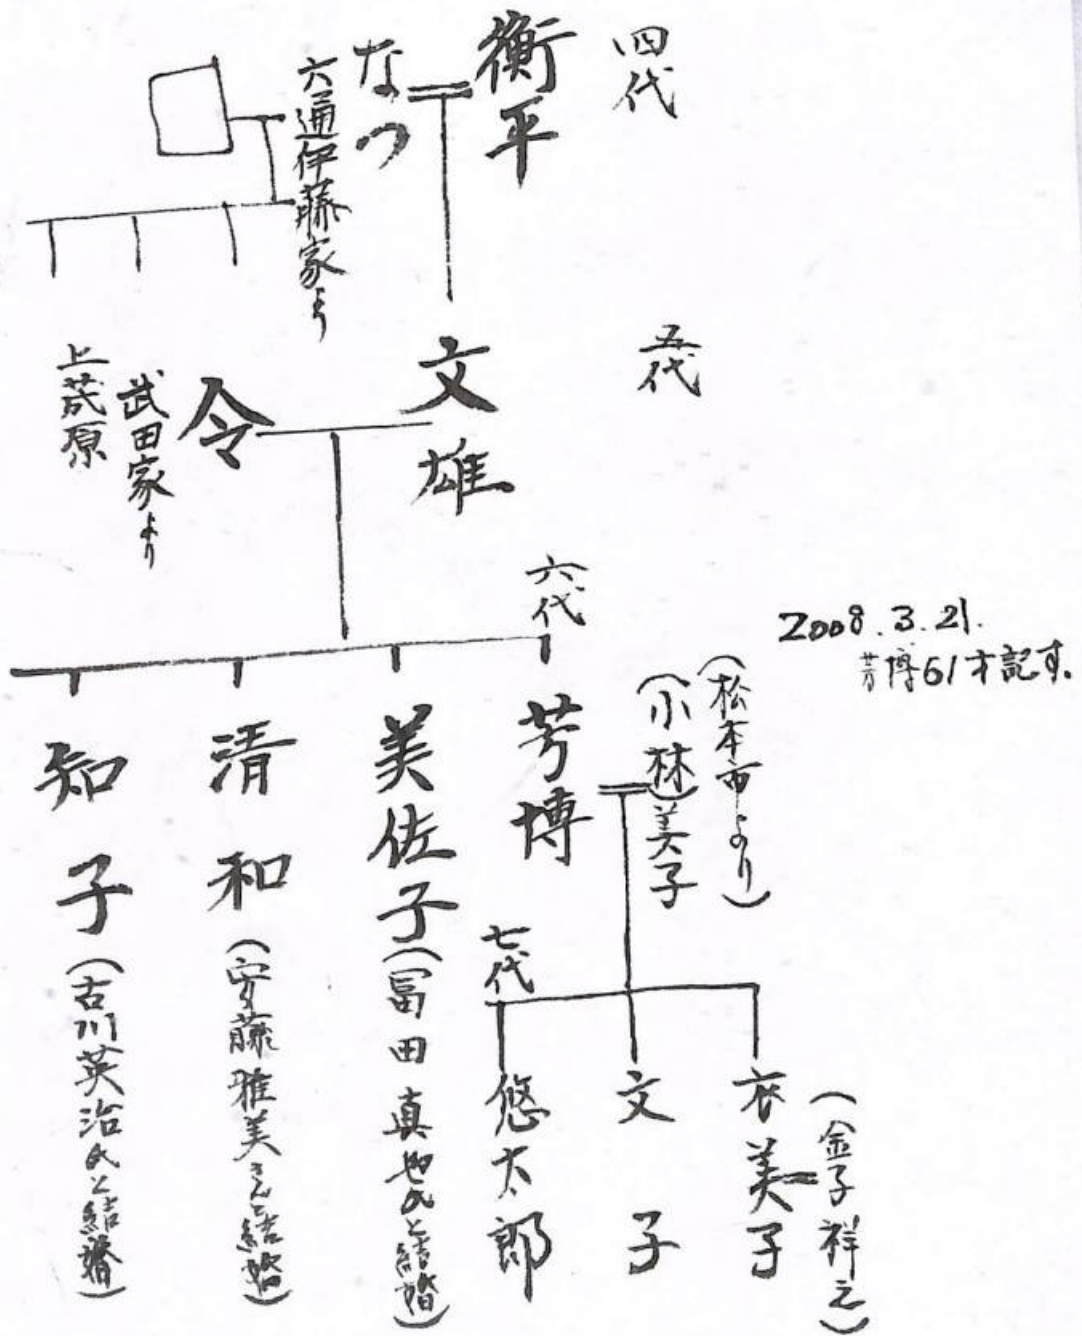 四代
衡平
なつ
六通伊藤家より
五代
文雄
令
武田家より
上茂原
六代
2008.3.21.
芳博61才記す。
芳博
(小林)美子
(松本市より)
美佐子(冨田真也氏と結婚)
清和(安藤雅美さんと結婚)
知子(古川英治氏と結婚)
七代
衣美子
(金子祥之)
文子
悠太郎